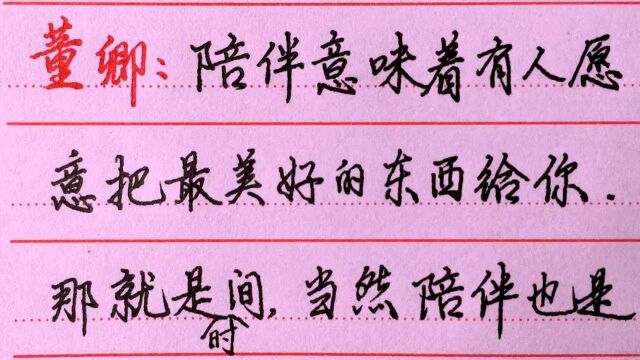 董卿：陪伴意味着有人愿
意把最美好的东西给你.
那就是时间,当然陪伴也是